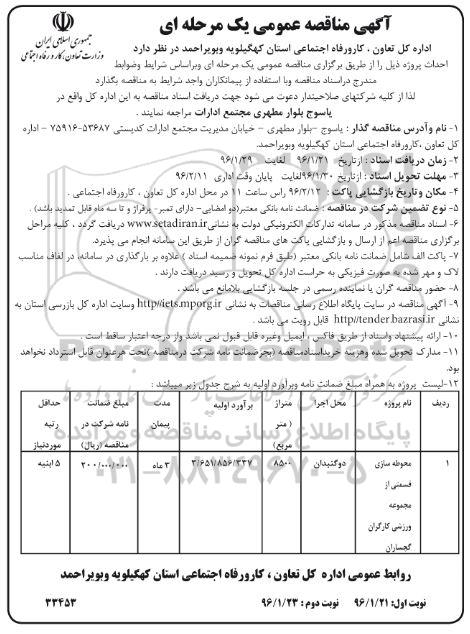 آگهی مناقصه عمومی یک مرحله ای
جمهوری اسلامی ایران
وزارت تعاون، کار و رفاه اجتماعی
اداره کل تعاون ، کارورفاه اجتماعی استان کهگیلویه وبویراحمد در نظر دارد
احداث پروژه ذیل را از طریق برگزاری مناقصه عمومی یک مرحله ای وبراساس شرایط وضوابط
مندرج دراسناد مناقصه وبا استفاده از پیمانکاران واجد شرایط به مناقصه بگذارد
لذا از کلیه شرکتهای صلاحیتدار دعوت می شود جهت دریافت اسناد مناقصه به این اداره کل واقع در
یاسوج بلوار مطهری مجتمع ادارات مراجعه نمایند .
۱- نام وآدرس مناقصه گذار : یاسوج –بلوار مطهری – خیابان مدیریت مجتمع ادارات کدپستی ۵۳۶۸۷-۷۵۹۱۶ – اداره
کل تعاون ،کارورفاه اجتماعی استان کهگیلویه وبویراحمد.
۲- زمان دریافت اسناد : ازتاریخ ۹۶/۱/۲۱ لغایت ۹۶/۱/۲۹
۳- مهلت تحویل اسناد : ازتاریخ ۹۶/۱/۳۰لغایت پایان وقت اداری ۹۶/۲/۱۱
۴- مکان و تاریخ بازگشایی پاکت : ۹۶/۲/۱۲ راس ساعت ۱۱ در محل اداره کل تعاون ، کارورفاه اجتماعی .
۵- نوع تضمین شرکت در مناقصه : ضمانت نامه بانکی معتبر(دو امضایی- دارای تمبر- پرفراژ و تا سه ماه قابل تمدید باشد) .
۶- اسناد مناقصه مذکور در سامانه تدارکات الکترونیکی دولت به نشانی www.setadiran.ir دریافت گردد . کلیه مراحل
برگزاری مناقصه اعم از ارسال و بازگشایی پاکت های مناقصه گران از طریق این سامانه انجام می پذیرد.
۷- پاکت الف شامل ضمانت نامه بانکی معتبر (طبق فرم نمونه ضمیمه اسناد ) علاوه بر بارگذاری در سامانه، در لفاف مناسب
لاک و مهر شده به صورت فیزیکی به حراست اداره کل تحویل و رسید دریافت دارند .
۸- حضور مناقصه گران یا نماینده رسمی در جلسه بازگشایی بلامانع می باشد .
۹- آگهی مناقصه در سایت پایگاه اطلاع رسانی مناقصات به نشانی http//iets.mporg.ir وسایت اداره کل بازرسی استان به
نشانی http//tender.bazrasi.ir قابل رویت می باشد .
۱۰- ارائه پیشنهاد واسناد از طریق فاکس ، ایمیل وغیره قابل قبول نمی باشد واز درجه اعتبار ساقط است .
۱۱- مدارک تحویل شده وهزینه خریداسنادمناقصه (بجزضمانت نامه شرکت درمناقصه )تحت هرعنوان قابل استرداد نخواهد
بود.
۱۲-لیست پروژه به همراه مبلغ ضمانت نامه وبرآورد اولیه به شرح جدول زیر میباشد :
ردیف نام پروژه محل اجرا متراژ ( متر مربع) برآورد اولیه مدت پیمان مبلغ ضمانت نامه شرکت در مناقصه (ریال) حداقل رتبه موردنیاز
۱ محوطه سازی قسمتی از مجموعه ورزشی کارگران گچساران دوگنبدان ۸۵۰۰ ۳/۶۵۱/۸۵۶/۳۳۷ ۳ ماه ۲۰۰/۰۰۰/۰۰۰ ۵ ابنیه
پایگاه اطلاع رسانی مناقصه و مزایده
۰۲۱-۸۸۳۴۹۶۷۰-۵
روابط عمومی اداره کل تعاون ، کارورفاه اجتماعی استان کهگیلویه وبویراحمد
نوبت اول: ۹۶/۱/۲۱ نوبت دوم : ۹۶/۱/۲۳ ۳۳۴۵۳